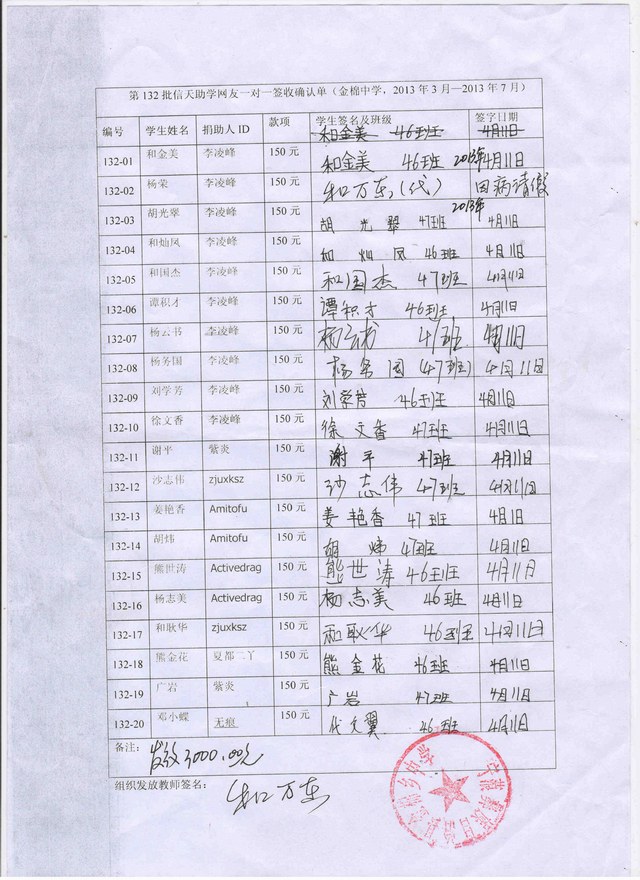 第 132 批信天助学网友一对一签收确认单（金棉中学，2013 年 3 月—2013 年 7 月）
编号 学生姓名 捐助人 ID 款项 学生签名及班级 签字日期
和金美 46班 4月11日
132-01 和金美 李凌峰 150 元 和金美 46班 2013年4月11日
132-02 杨荣 李凌峰 150 元 和万东(代) 因病请假
2013年
132-03 胡光翠 李凌峰 150 元 胡光翠 47班 4月11日
132-04 和灿凤 李凌峰 150 元 和灿凤 46班 4月11日
132-05 和国杰 李凌峰 150 元 和国杰 47班 4月11日
132-06 谭积才 李凌峰 150 元 谭积才 46班 4月11日
132-07 杨云书 李凌峰 150 元 杨云书 47班 4月11日
132-08 杨务国 李凌峰 150 元 杨务国 (47班) 4月11日
132-09 刘学芳 李凌峰 150 元 刘学芳 46班 4月11日
132-10 徐文香 李凌峰 150 元 徐文香 47班 4月11日
132-11 谢平 紫炎 150 元 谢平 47班 4月11日
132-12 沙志伟 zjuxksz 150 元 沙志伟 47班 4月11日
132-13 姜艳香 Amitofu 150 元 姜艳香 47班 4月11日
132-14 胡炜 Amitofu 150 元 胡炜 47班 4月11日
132-15 熊世涛 Activedrag 150 元 熊世涛 46班 4月11日
132-16 杨志美 Activedrag 150 元 杨志美 46班 4月11日
132-17 和耿华 zjuxksz 150 元 和耿华 46班 4月11日
132-18 熊金花 夏都二丫 150 元 熊金花 46班 4月11日
132-19 广岩 紫炎 150 元 广岩 47班 4月11日
132-20 邓小蝶 无痕 150 元 代文翼 46班 4月11日
备注： 发放3000.00元
组织发放教师签名： 和万东